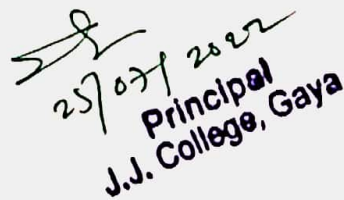 25/07/2022
Principal
J.J. College, Gaya